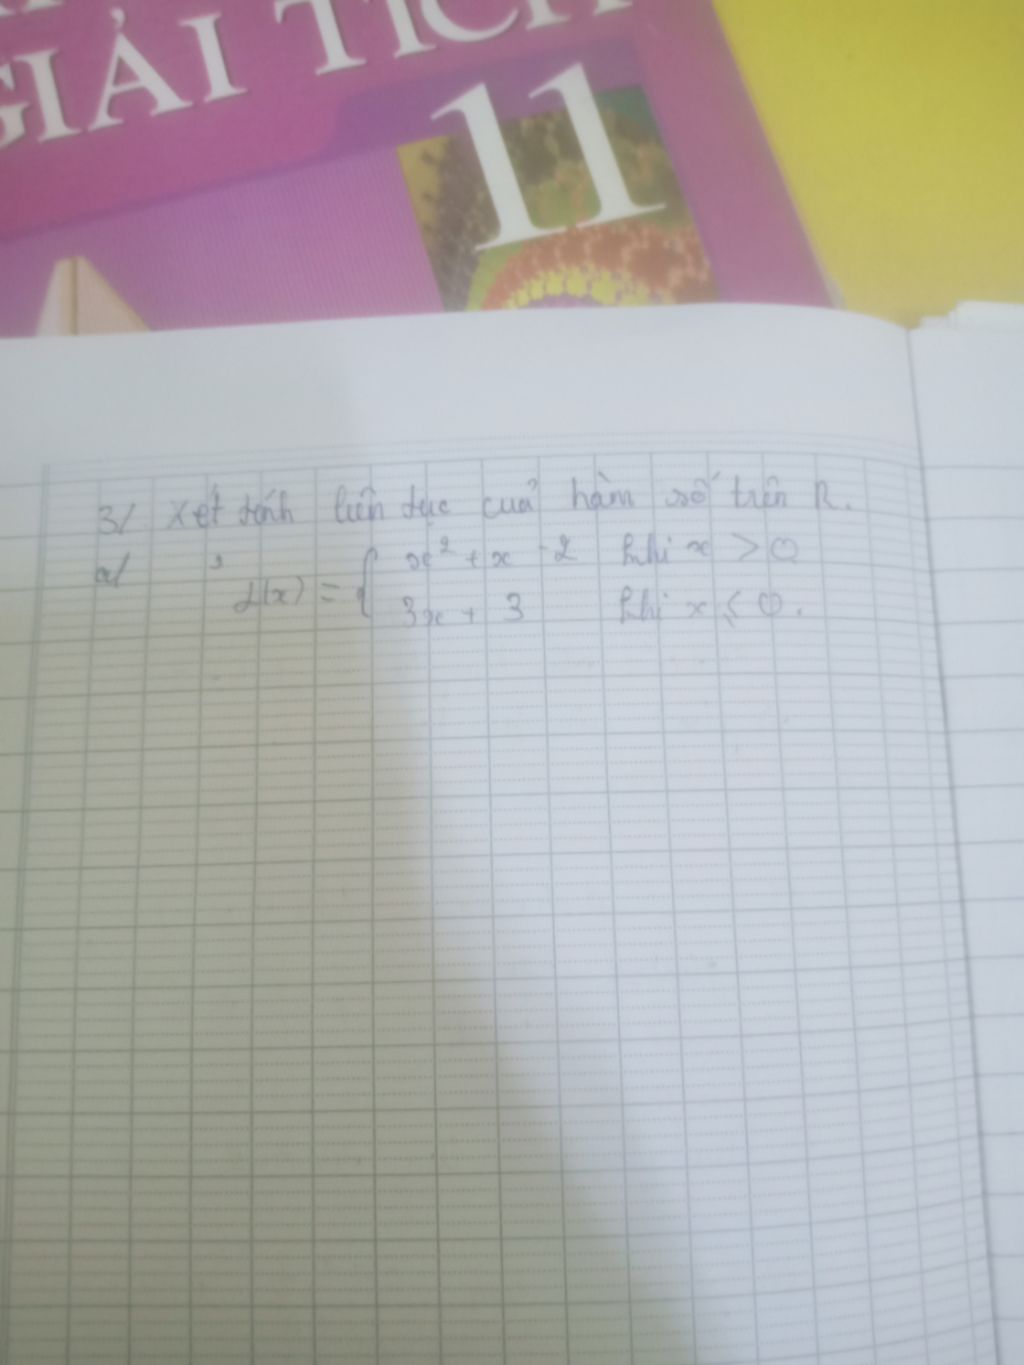 GIẢI TÍCH
11
3/ Xét tính liên tục của hàm số trên R.
a/ f(x) = { x² + x - 2 khi x > 0
3x + 3 khi x ≤ 0.